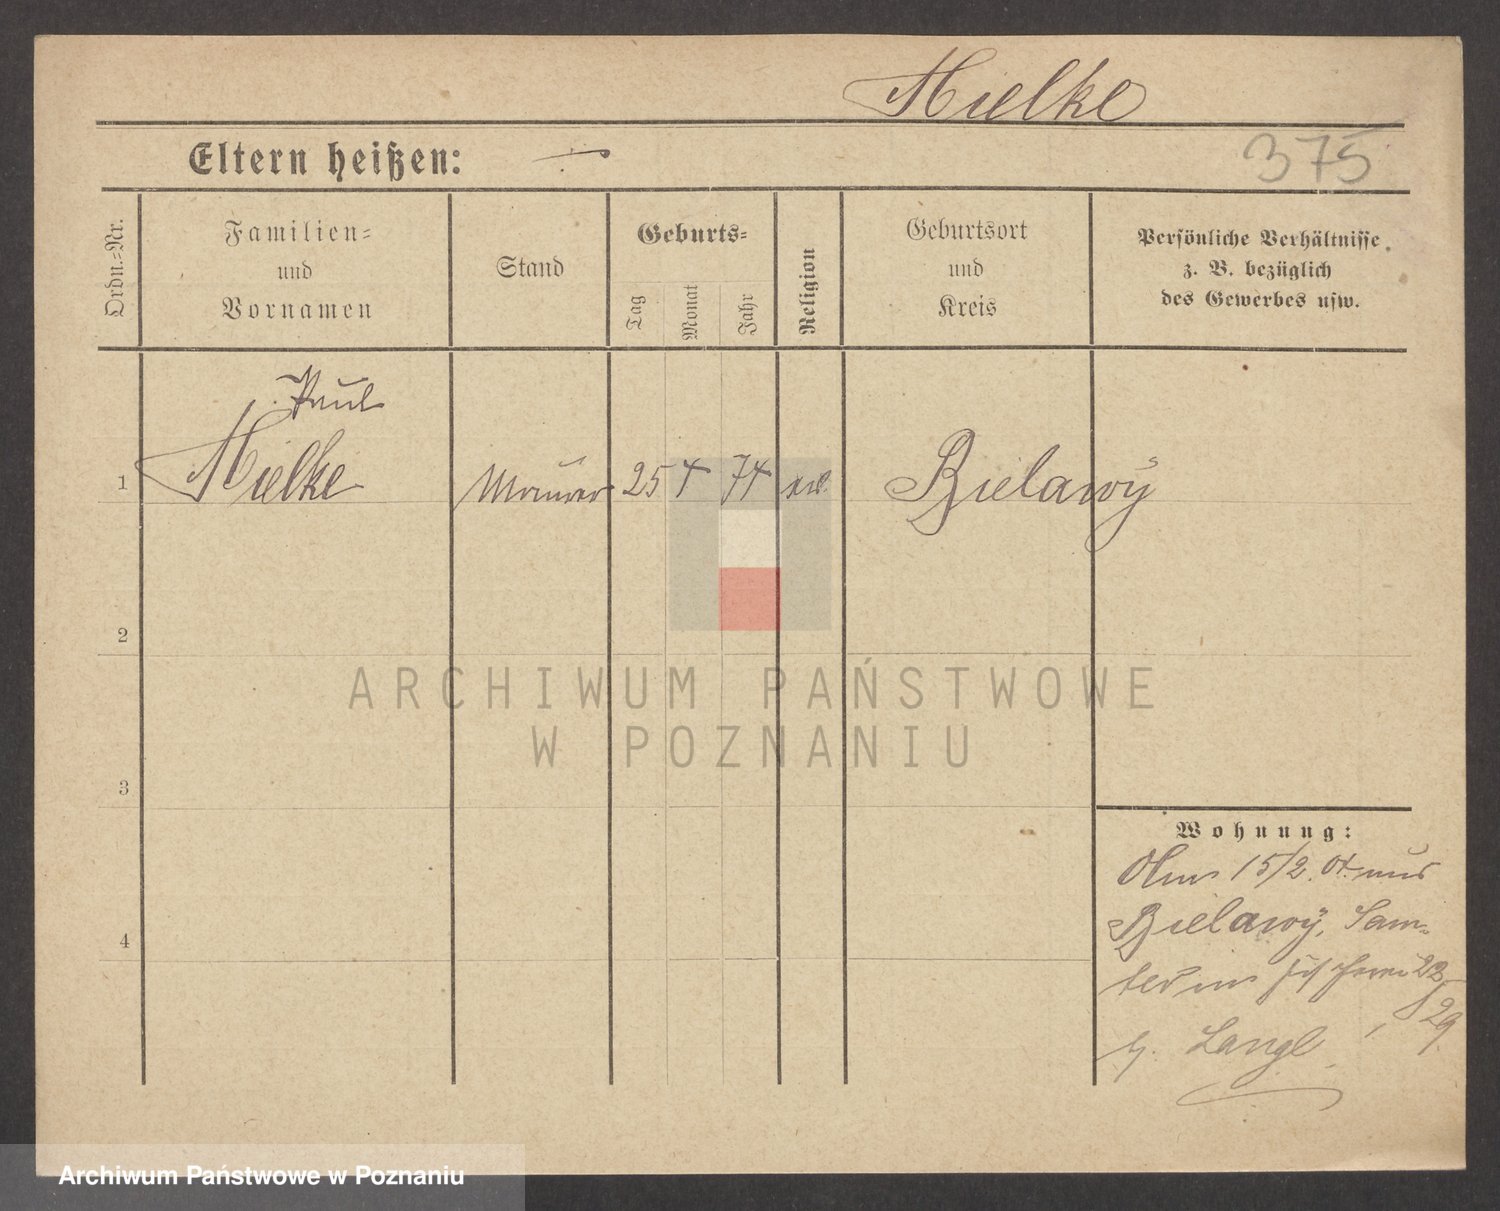 Mielke
Eltern heißen:
375
Ordn.-Nr.
Familien-
und
Vornamen
Stand
Geburts-
Tag
Monat
Jahr
Religion
Geburtsort
und
Kreis
Persönliche Verhältnisse
z. B. bezüglich
des Gewerbes usw.
Paul
1
Mielke
Maurer
25
4
74
Bielawy
2
3
4
Wohnung:
15/2. 01. aus
Bielawy, Sam-
ter
22
29
b. Langl
ARCHIWUM PAŃSTWOWE
W POZNANIU
Archiwum Państwowe w Poznaniu